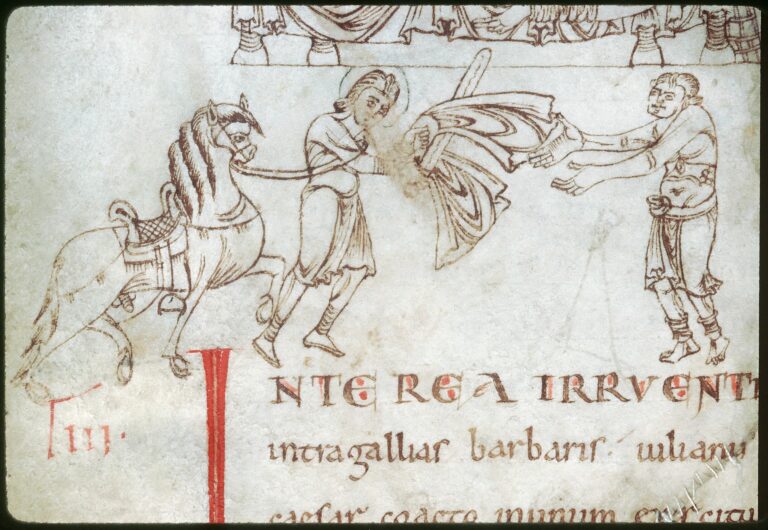 INTEREA IRRVENTI
III.
intra gallias barbaris. iulianus
caesar coacto in unum exercitu